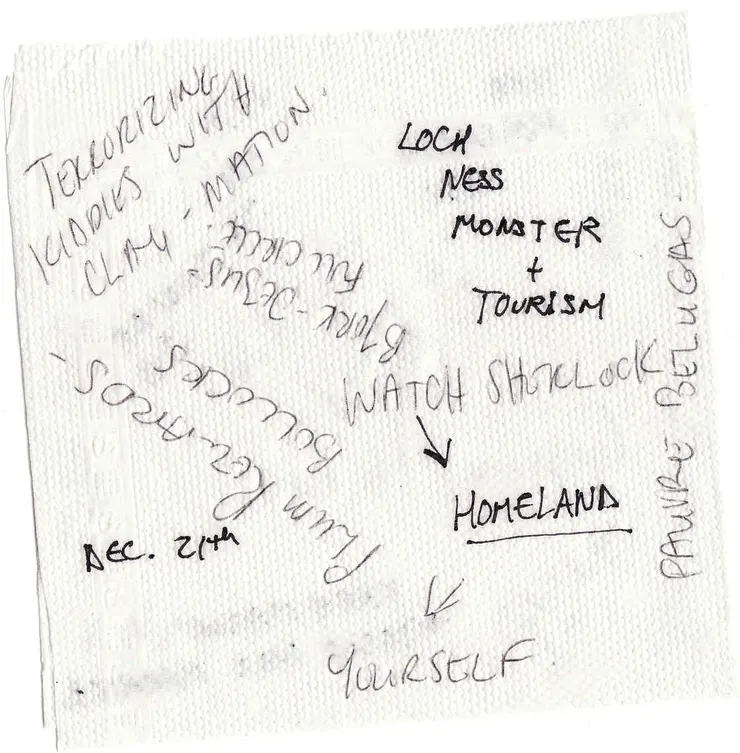 TERRORIZING
KIDDIES WITH
CLAY-MATION.
LOCH
NESS
MONSTER
+
TOURISM
BJORK-JESUS-
FULL CIRCLE.
BOLLOCKS
PLUM
WATCH SHERLOCK
HOMELAND
PAUVRE BELUGAS-
DEC. 21th
YOURSELF.